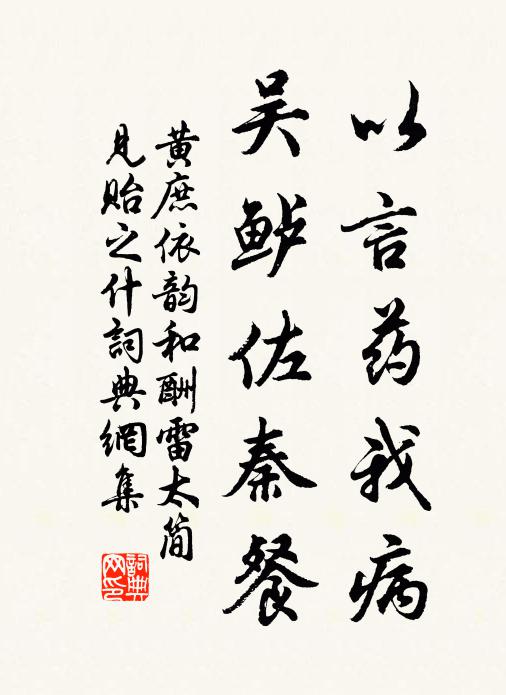 以言药我病
吴鲈佐秦餐
黄庶依韵和酬雷太简
见贻之什詞典網集
詞典
网印